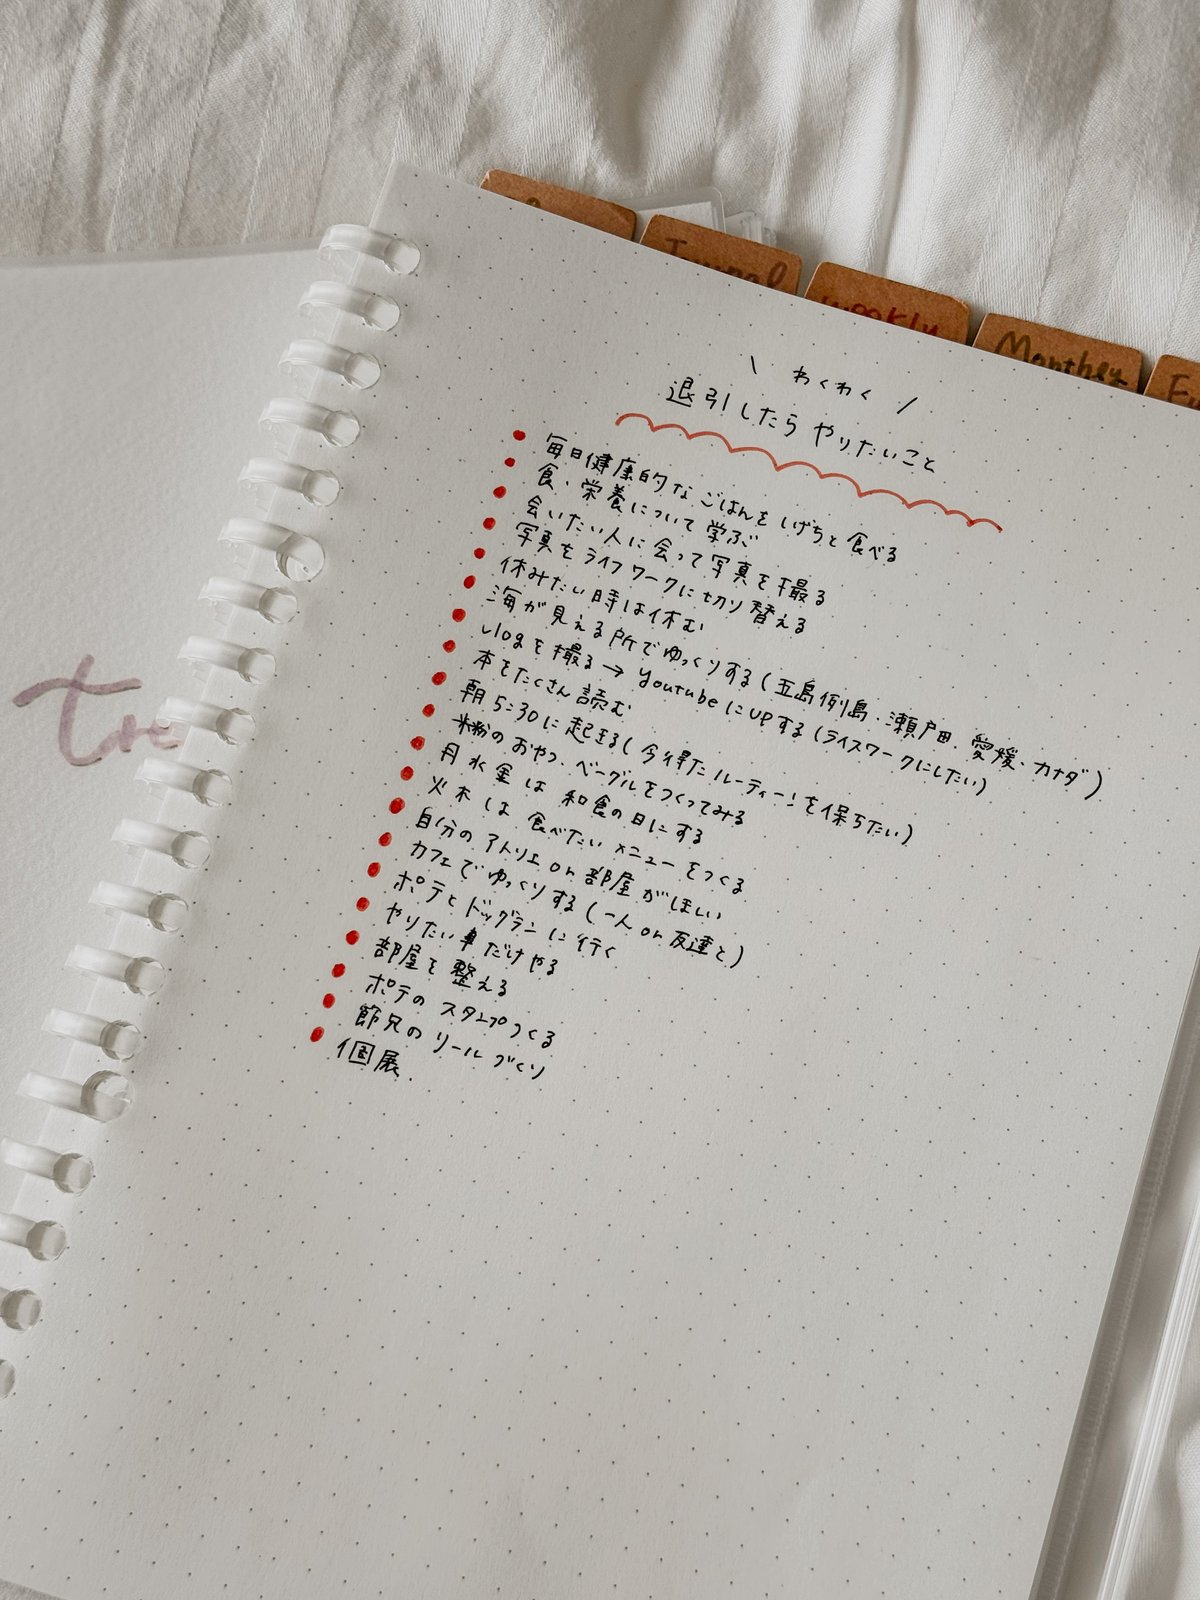 Journal
weekly
Monthly
\ わくわく /
退引したら やりたいこと
毎日健康的な ごはんを しげちと 食べる
食・栄養について 学ぶ
会いたい人に 会って 写真を 撮る
写真を ライフワークに 切り替える
休みたい時は休む
海が見える所で ゆっくりする(五島列島・瀬戸田・愛媛・カナダ)
vlogを撮る→ youtubeにupする(ライスワークにしたい)
本をたくさん読む
朝5:30に起きる(今得たルーティーンを保ちたい)
米粉のおやつ、ベーグルをつくってみる
月 水 金 は 和食の日にする
火 木 は 食べたい メニューをつくる
自分の アトリエ or 部屋 がほしい
カフェで ゆっくりする(一人 or 友達と)
ポテと ドッグランに行く
やりたい事だけやる
部屋を 整える
ポテの スタンプつくる
節兄の リールづくり
個展
tre